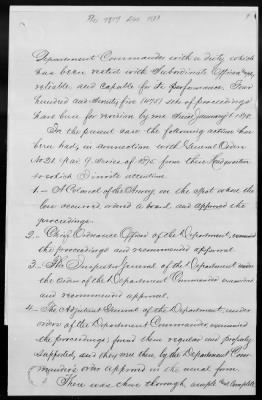 Department Commander with a duty which
has been vested with Subordinate Officers
reliable and capable for its performance. Four
hundred and seventy five (475) sets of proceedings
have been for revision by me since January 1
In the present case the following action has
been had, in connection with General Orders
No 21 series of from
to which I invite attention.
1. — A Colonel of the Army on the spot where the
loss occurred, ordered a board, and approved the
proceedings.
2. — Chief Ordnance Officer of the Department, examined
the proceedings and recommended approval.
3. — The Inspector General of the Department under
the order of the Department Commander examined
and recommended approval.
4. — The Adjutant General of the Department, under
orders of the Department Commander, examined
the proceedings; found them regular and properly
supported, and they are then, by the Department Com-
mander's order approved in the usual form.
There was then thorough, ample and complete